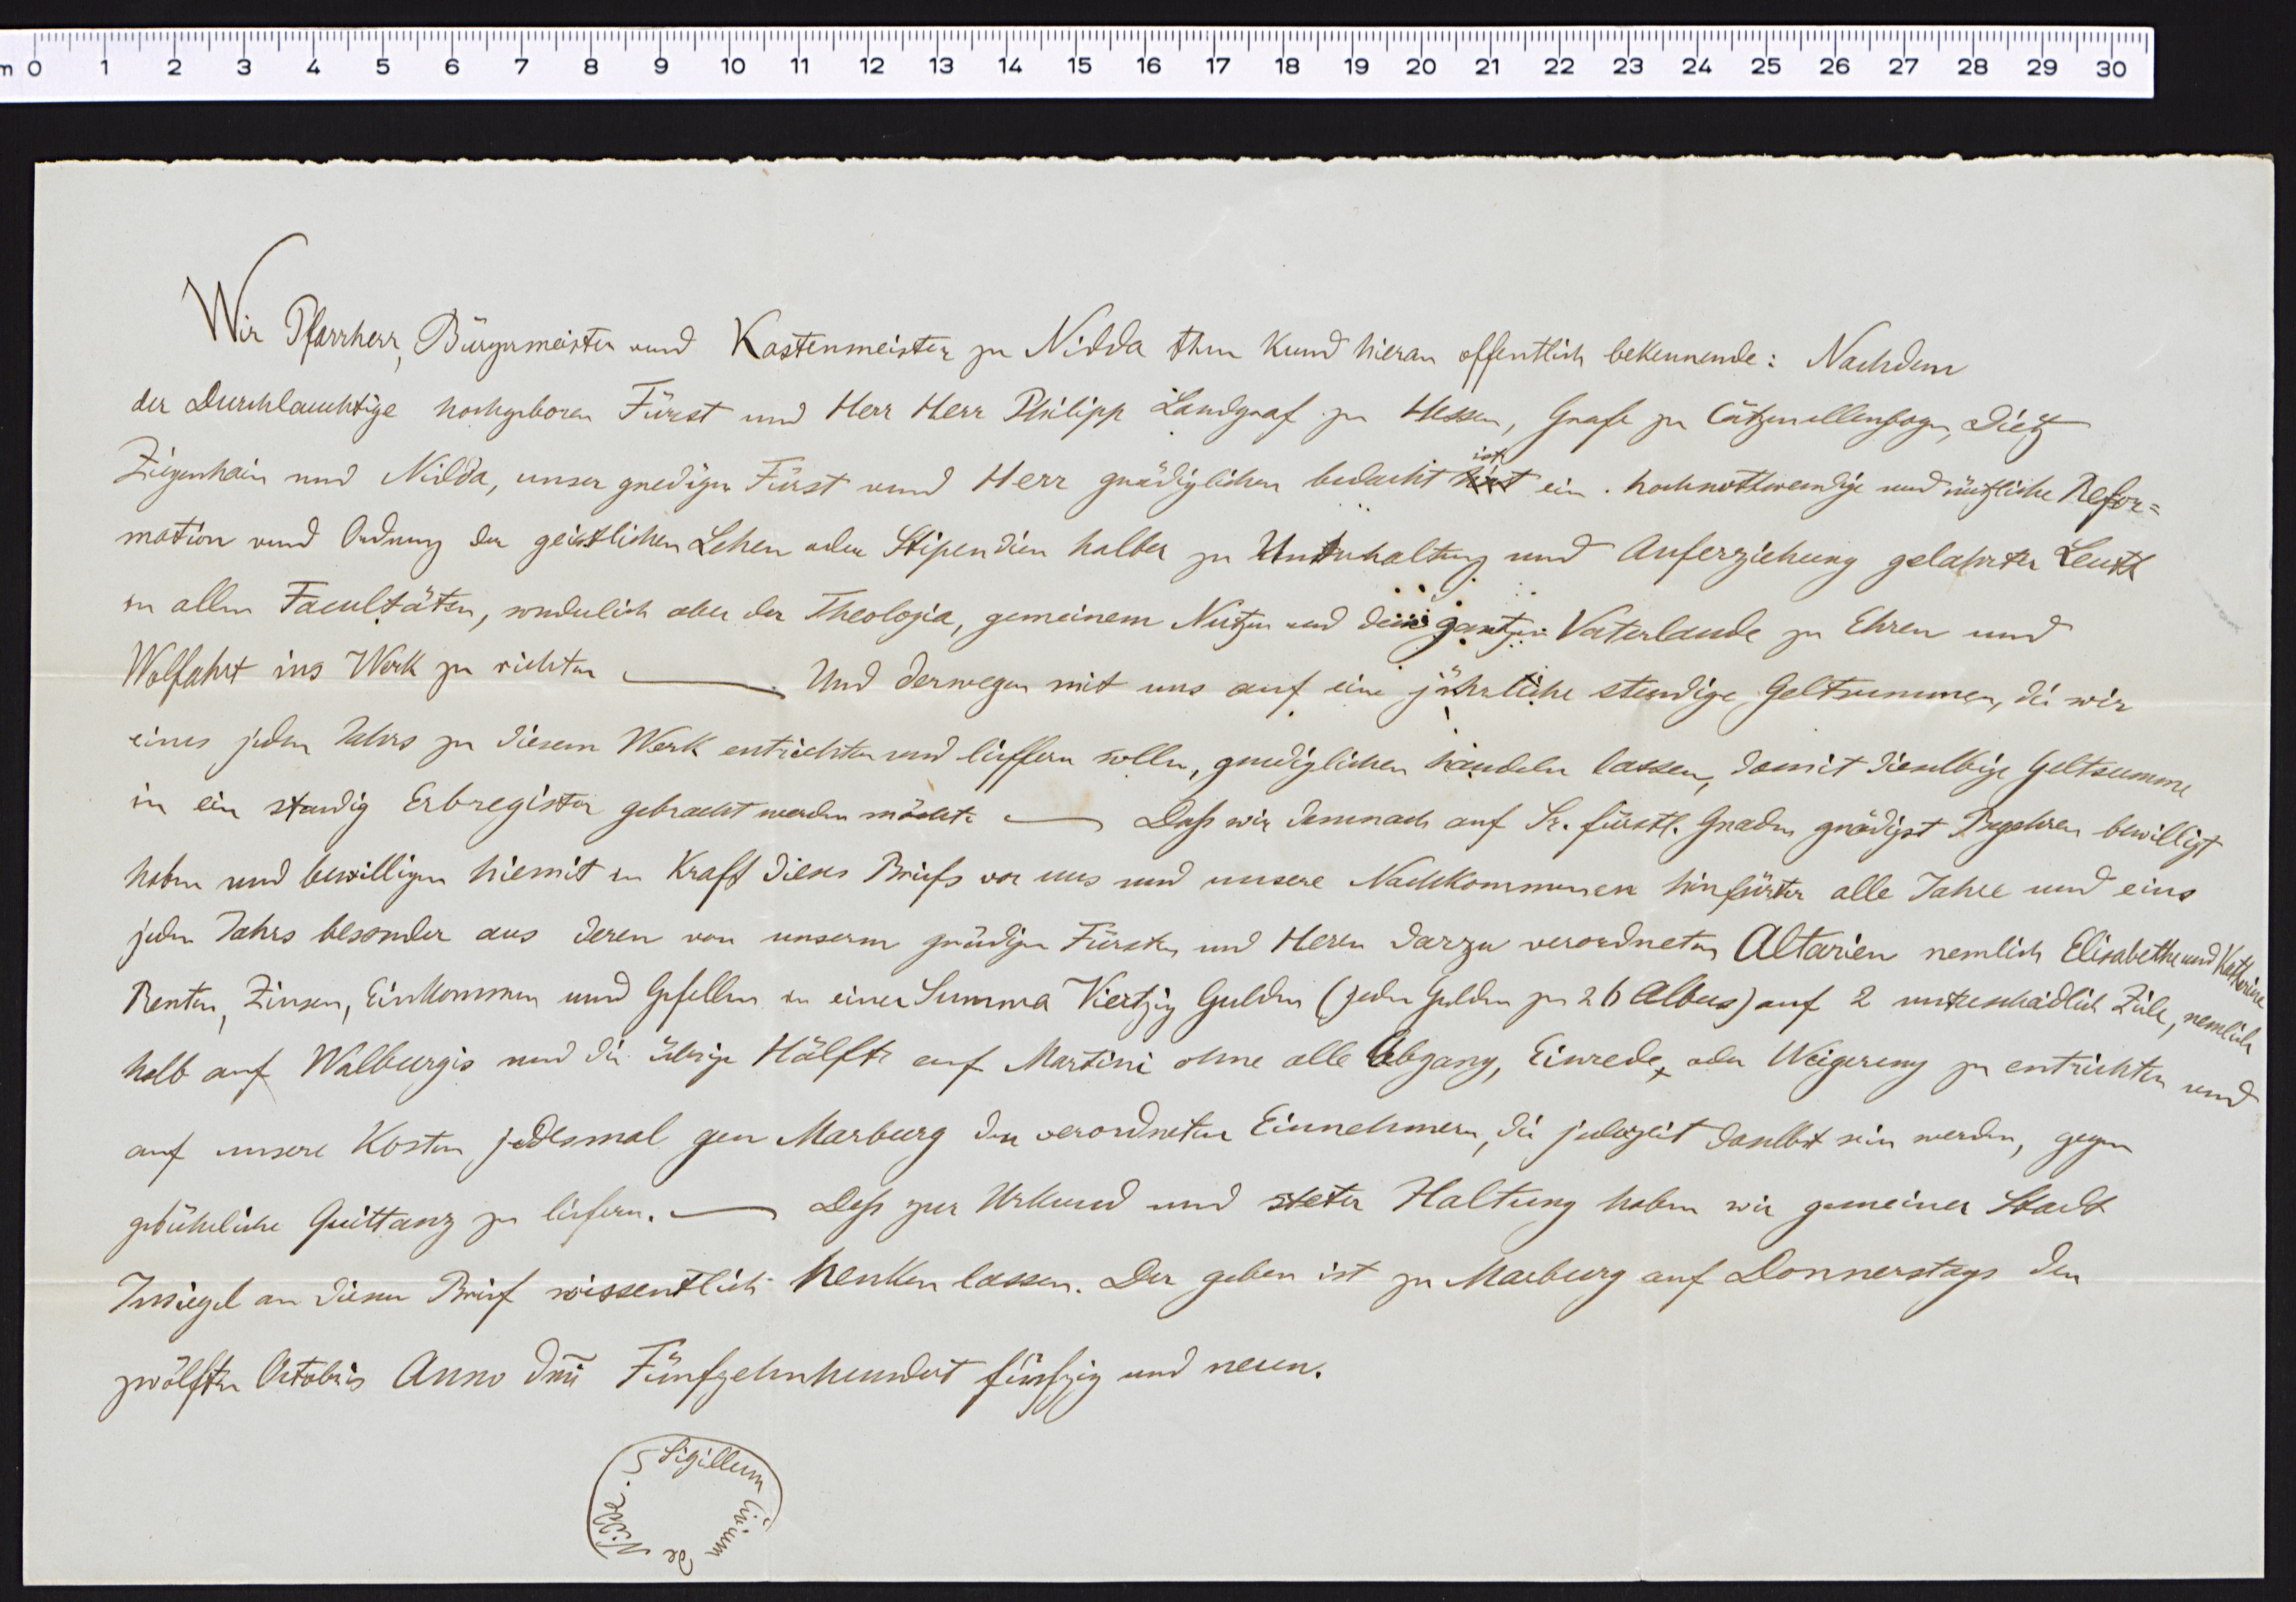 m 0 1 2 3 4 5 6 7 8 9 10 11 12 13 14 15 16 17 18 19 20 21 22 23 24 25 26 27 28 29 30
Wir Pfarrherr, Bürgermeister und Kastenmeister zu Nidda thun kund hieran offentlich bekennende: Nachdem
der Durchlauchtige hochgeboren Fürst und Herr Herr Philipp Landgraf zu Hessen, Grafe zu Catzenellenbogen, Dietz
Ziegenhain und Nidda, unser gnediger Fürst und Herr gnädiglichen bedacht ist ein hochnothwendige und nützliche Refor=
mation und Ordnung der geistlichen Lehen oder Stipendien halber zu Unterhaltung und Auferziehung gelahrter Leutt
in allen Facultäten, sonderlich aber der Theologia, gemeinem Nutzen und dem gantzen Vaterlande zu Ehren und
Wolfahrt ins Werk zu richten — Und derwegen mit uns auf eine jährliche stendige Geltsummen, die wir
eines jeden Jahrs zu diesem Werk entrichten und lieffern sollen, gnediglichen handeln lassen, damit dieselbige Geltsumme
in ein standig Erbregister gebracht werden möchte — Daß wir demnach auf Sr. fürstl. Gnaden gnädigst Begehren bewilligt
haben und bewilligen hiemit in Kraft dieses Briefs vor uns und unsere Nachkommenen hinfürter alle Jahre und eins
jeden Jahrs besonder aus deren von unserm gnädigen Fürsten und Herrn darzu verordneten Altarien nemlich Elisabethe und Katherine
Renten, Zinsen, Einkommen und Gefellen in einer Summa Viertzig Gulden (jeden Gulden zu 26 Albus) auf 2 unterschiedlich Ziele, nemlich
halb auf Walburgis und die übrige Hälfte auf Martini ohne alle Abgang, Einrede, oder Weigerung zu entrichten und
auf unsere Kosten jedesmal gen Marburg den verordneten Einnehmern, die jederzeit daselbst sein werden, gegen
gebührliche Quittanz zu liefern. — Deß zur Urkund und steter Haltung haben wir gemeiner Stadt
Insiegel an diesen Brief wissentlich henken lassen. Der geben ist zu Marburg auf Donnerstags den
zwölften Octobris Anno dni Fünfzehnhundert fünfzig und neun.
S Sigillum Civium de Nidde.